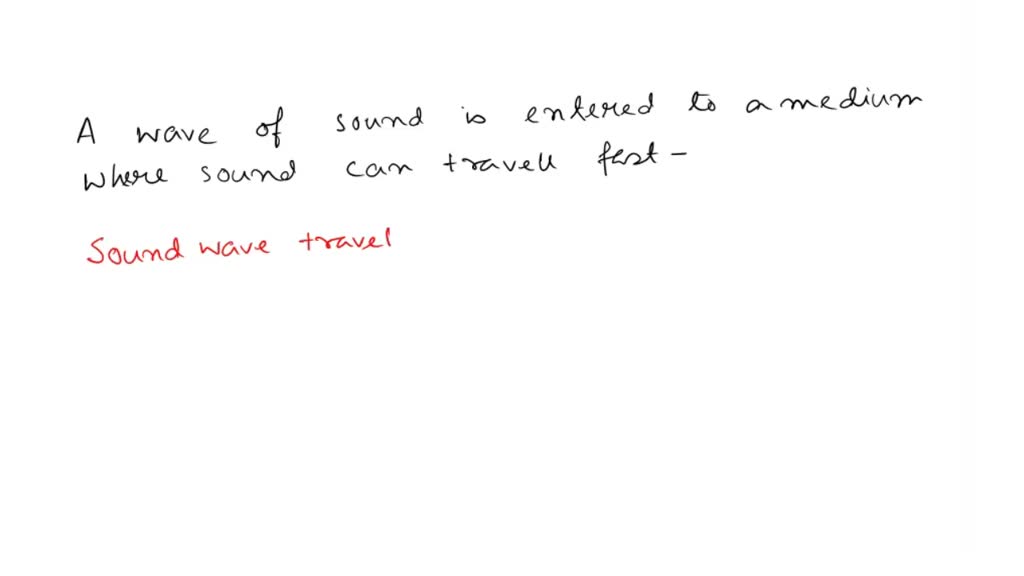 A wave of sound is entered to a medium
where sound can travell fast -
Sound wave travel